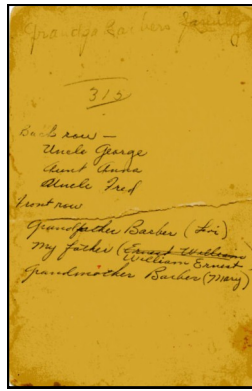 Grandpa Barbers Family
315
Back row —
Uncle George
Aunt Anna
Uncle Fred
Front row
Grandfather Barber (Levi)
My father (Ernest William)
William Ernest
Grandmother Barber (Mary)